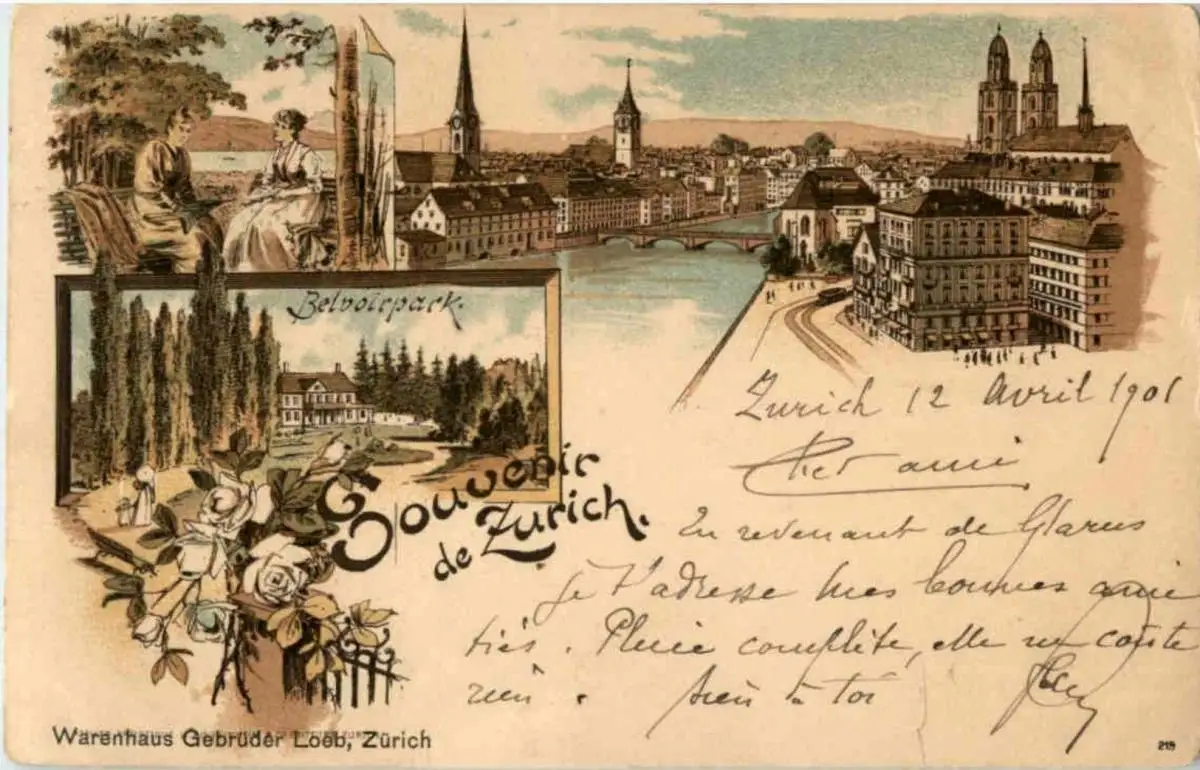 Belvoirpark.
Souvenir
de Zürich.
Zurich 12 Avril 1901
Cher ami
En revenant de Glarus
je t'adresse mes bonnes ami
tiés. Pluie complète, elle ne coûte
rien. bien à toi
Warenhaus Gebrüder Loeb, Zürich
219